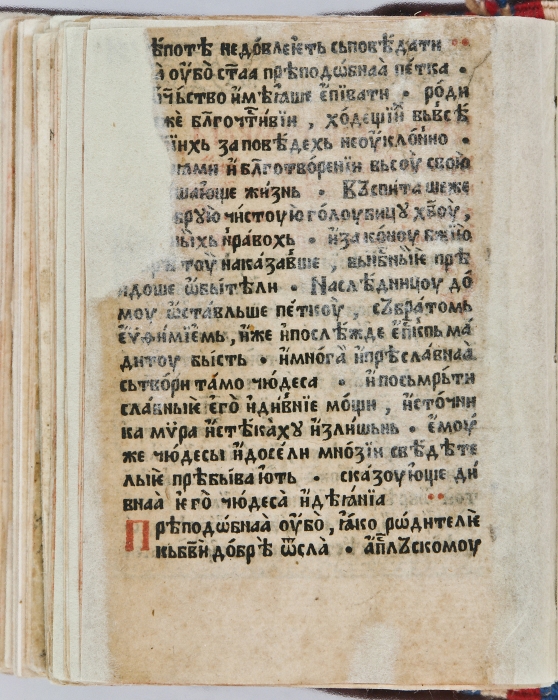 ѣпотѣ недо́влѣеть сьповѣ́дати
ѹ҆бо̀ ст҃аа прѣподѡ́бнаа пе́тка •
ѡ҆ть́чьство и҆мѣꙗ́ше є҆пїва́ти • ро́ди
же бл҃гочти́вїи , хо́дещїи вь́всѣ
за́повѣдехь неѹ҆кло́нно •
и҆ бл҃готворе́нїи вьсѹ свою̀
ша́юще жи́знь • Въспита́шеже
бру́ю чи́стѹю го́лѹбицꙋ хв҃ѹ ,
ныхь нра́вохь • и҆ зако́нѹ бж҃їю
тѹ нака́завше , вы́шнїие прѣ
идоше ѡ҆би́тѣли • Наслѣ́дницѹ до́
мѹ ѡ҆ста́вльше пе́ткѹ , съ бра́томь
є҆ѵ҆фи́мїемь , и҆́же и҆послѣ́жде є҆пⷭ҇кпь ма
дитѹ бысть • и҆мнѡ́га и҆прѣсла́внаа
сьтвори та́мо чю́деса • и҆посьмрь́ти
сла́вныѥ є҆го̀ и҆ди́внїе мо́щи , и҆сто́чни
ка мѵ́ра и҆стѣка́хꙋ и҆зли́шьнь • є҆мѹ́
же чю́десы и҆досе́ли мно́зїи свѣ́дѣте
лыѥ прѣбыва́ють • ска́зѹюще ди́
внаа ѥго̀ чю́деса̀ и҆дѣꙗ́нїа
Прѣподѡ́бнаа ѹ҆бо̀ , ꙗ҆́ко рѡ́дителїе
кьбв҃и до́брѣ ѿ́сла̀ • а҆пⷭ҇лъскомѹ